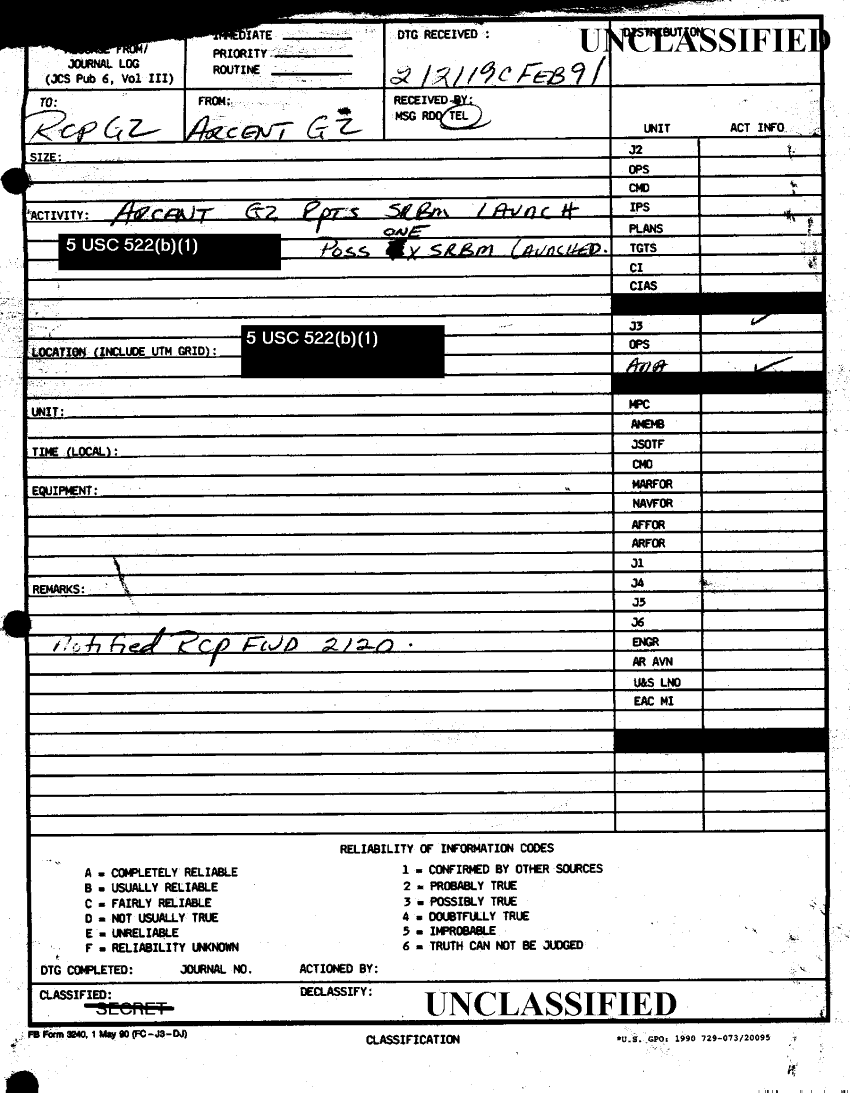 IMMEDIATE
PRIORITY
ROUTINE
MESSAGE FROM/
JOURNAL LOG
(JCS Pub 6, Vol III)
DTG RECEIVED :
212119C FEB 91
DISTRIBUTION
UNCLASSIFIED
TO:
RCP G2
FROM:
ARCENT G2
RECEIVED BY:
MSG RDO TEL
UNIT ACT INFO
SIZE:
ACTIVITY: ARCENT G2 RPTS SRBM LAUNCH
ONE
5 USC 522(b)(1) POSS X SRBM LAUNCHED.
5 USC 522(b)(1)
LOCATION (INCLUDE UTM GRID):
UNIT:
TIME (LOCAL):
EQUIPMENT:
REMARKS:
Notified RCP FWD 2120.
J2
OPS
CMD
IPS
PLANS
TGTS
CI
CIAS
J3
OPS
ADA
MPC
AMEMB
JSOTF
CMO
MARFOR
NAVFOR
AFFOR
ARFOR
J1
J4
J5
J6
ENGR
AR AVN
U&S LNO
EAC MI
RELIABILITY OF INFORMATION CODES
A = COMPLETELY RELIABLE
B = USUALLY RELIABLE
C = FAIRLY RELIABLE
D = NOT USUALLY TRUE
E = UNRELIABLE
F = RELIABILITY UNKNOWN
1 = CONFIRMED BY OTHER SOURCES
2 = PROBABLY TRUE
3 = POSSIBLY TRUE
4 = DOUBTFULLY TRUE
5 = IMPROBABLE
6 = TRUTH CAN NOT BE JUDGED
DTG COMPLETED: JOURNAL NO. ACTIONED BY:
CLASSIFIED:
SECRET
DECLASSIFY:
UNCLASSIFIED
FB Form 3240, 1 May 90 (FC-J3-DJ)
CLASSIFICATION
*U.S. GPO: 1990 729-073/20095